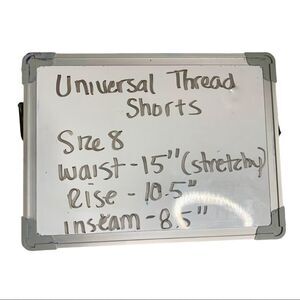 Universal Thread
Shorts
Size 8
Waist - 15" (stretchy)
Rise - 10.5"
inseam - 8.5"